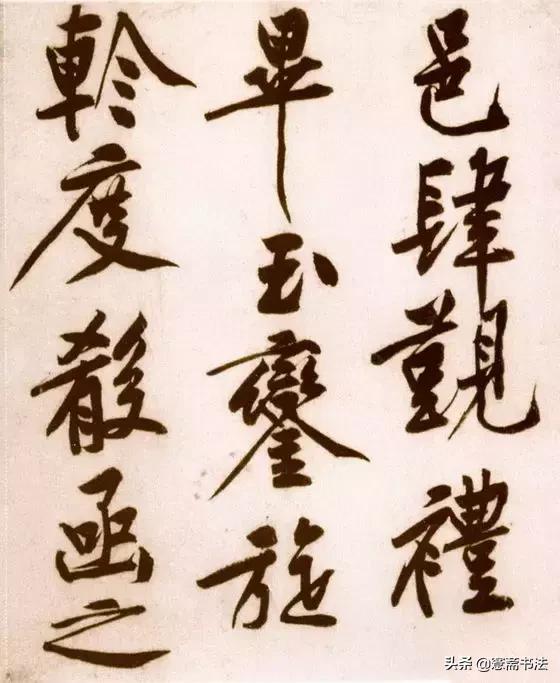 邑肆覲禮
畢玉鑾旋
軫度殽函之
头条 @斋书法